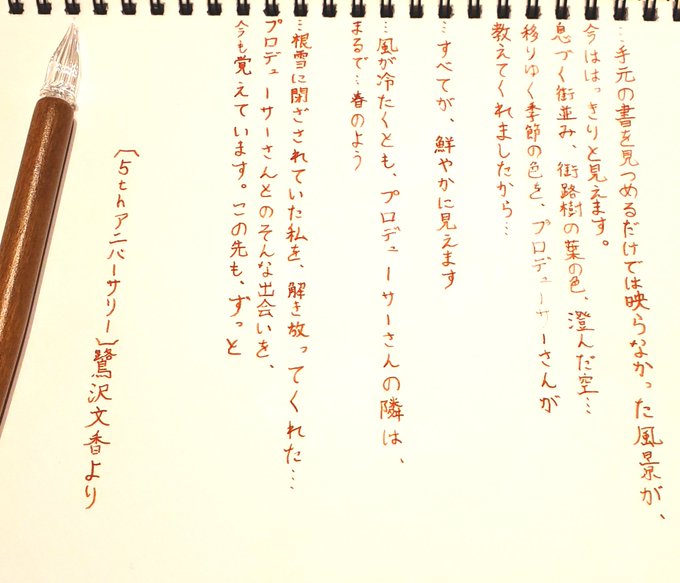 …手元の書を見つめるだけでは映らなかった風景が、
今ははっきりと見えます。
息づく街並み、街路樹の葉の色、澄んだ空…
移りゆく季節の色を、プロデューサーさんが
教えてくれましたから…
…すべてが、鮮やかに見えます
…風が冷たくとも、プロデューサーさんの隣は、
まるで…春のよう
…根雪に閉ざされていた私を、解き放ってくれた…
プロデューサーさんとのそんな出会いを、
今も覚えています。この先も、ずっと
〔5thアニバーサリー〕鷺沢文香より